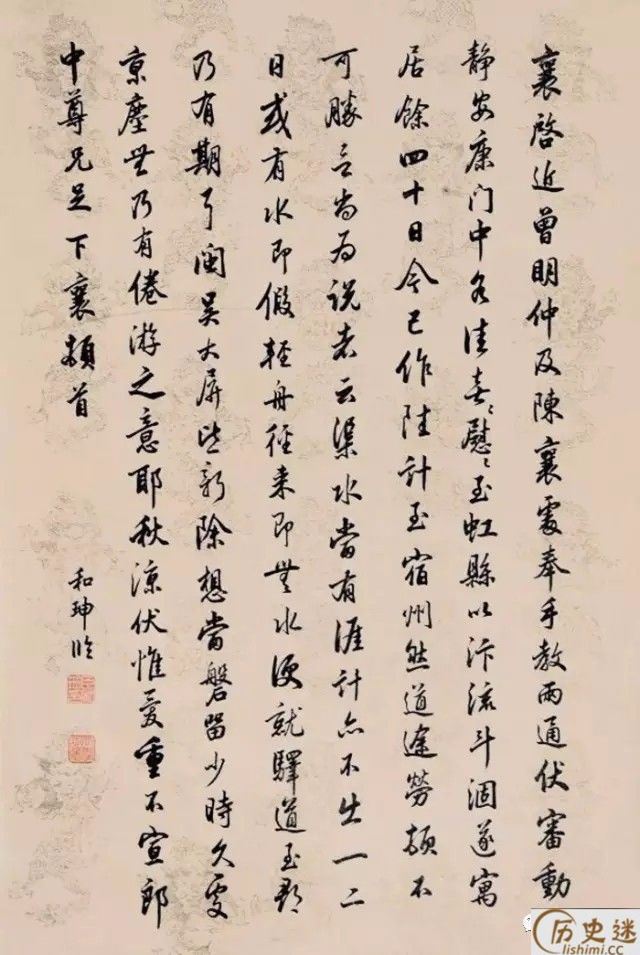 襄啓近曾明仲及陳襄處奉手教兩通伏審動
静安康门中各佳喜〻慰〻至虹縣以汴流斗涸遂寓
居餘四十日今已作陸計至宿州然道途勞頓不
可勝言尚为说者云渠水當有涯計亦不出一二
日或有水即假輕舟徑来即無水便就驛道至都
乃有期耳闽吴大屏皆新除想當磐留少時久處
京塵無乃有倦游之意耶秋凉伏惟爱重不宣郎
中尊兄足下襄頓首
和珅临
历史迷
lishimi.cc